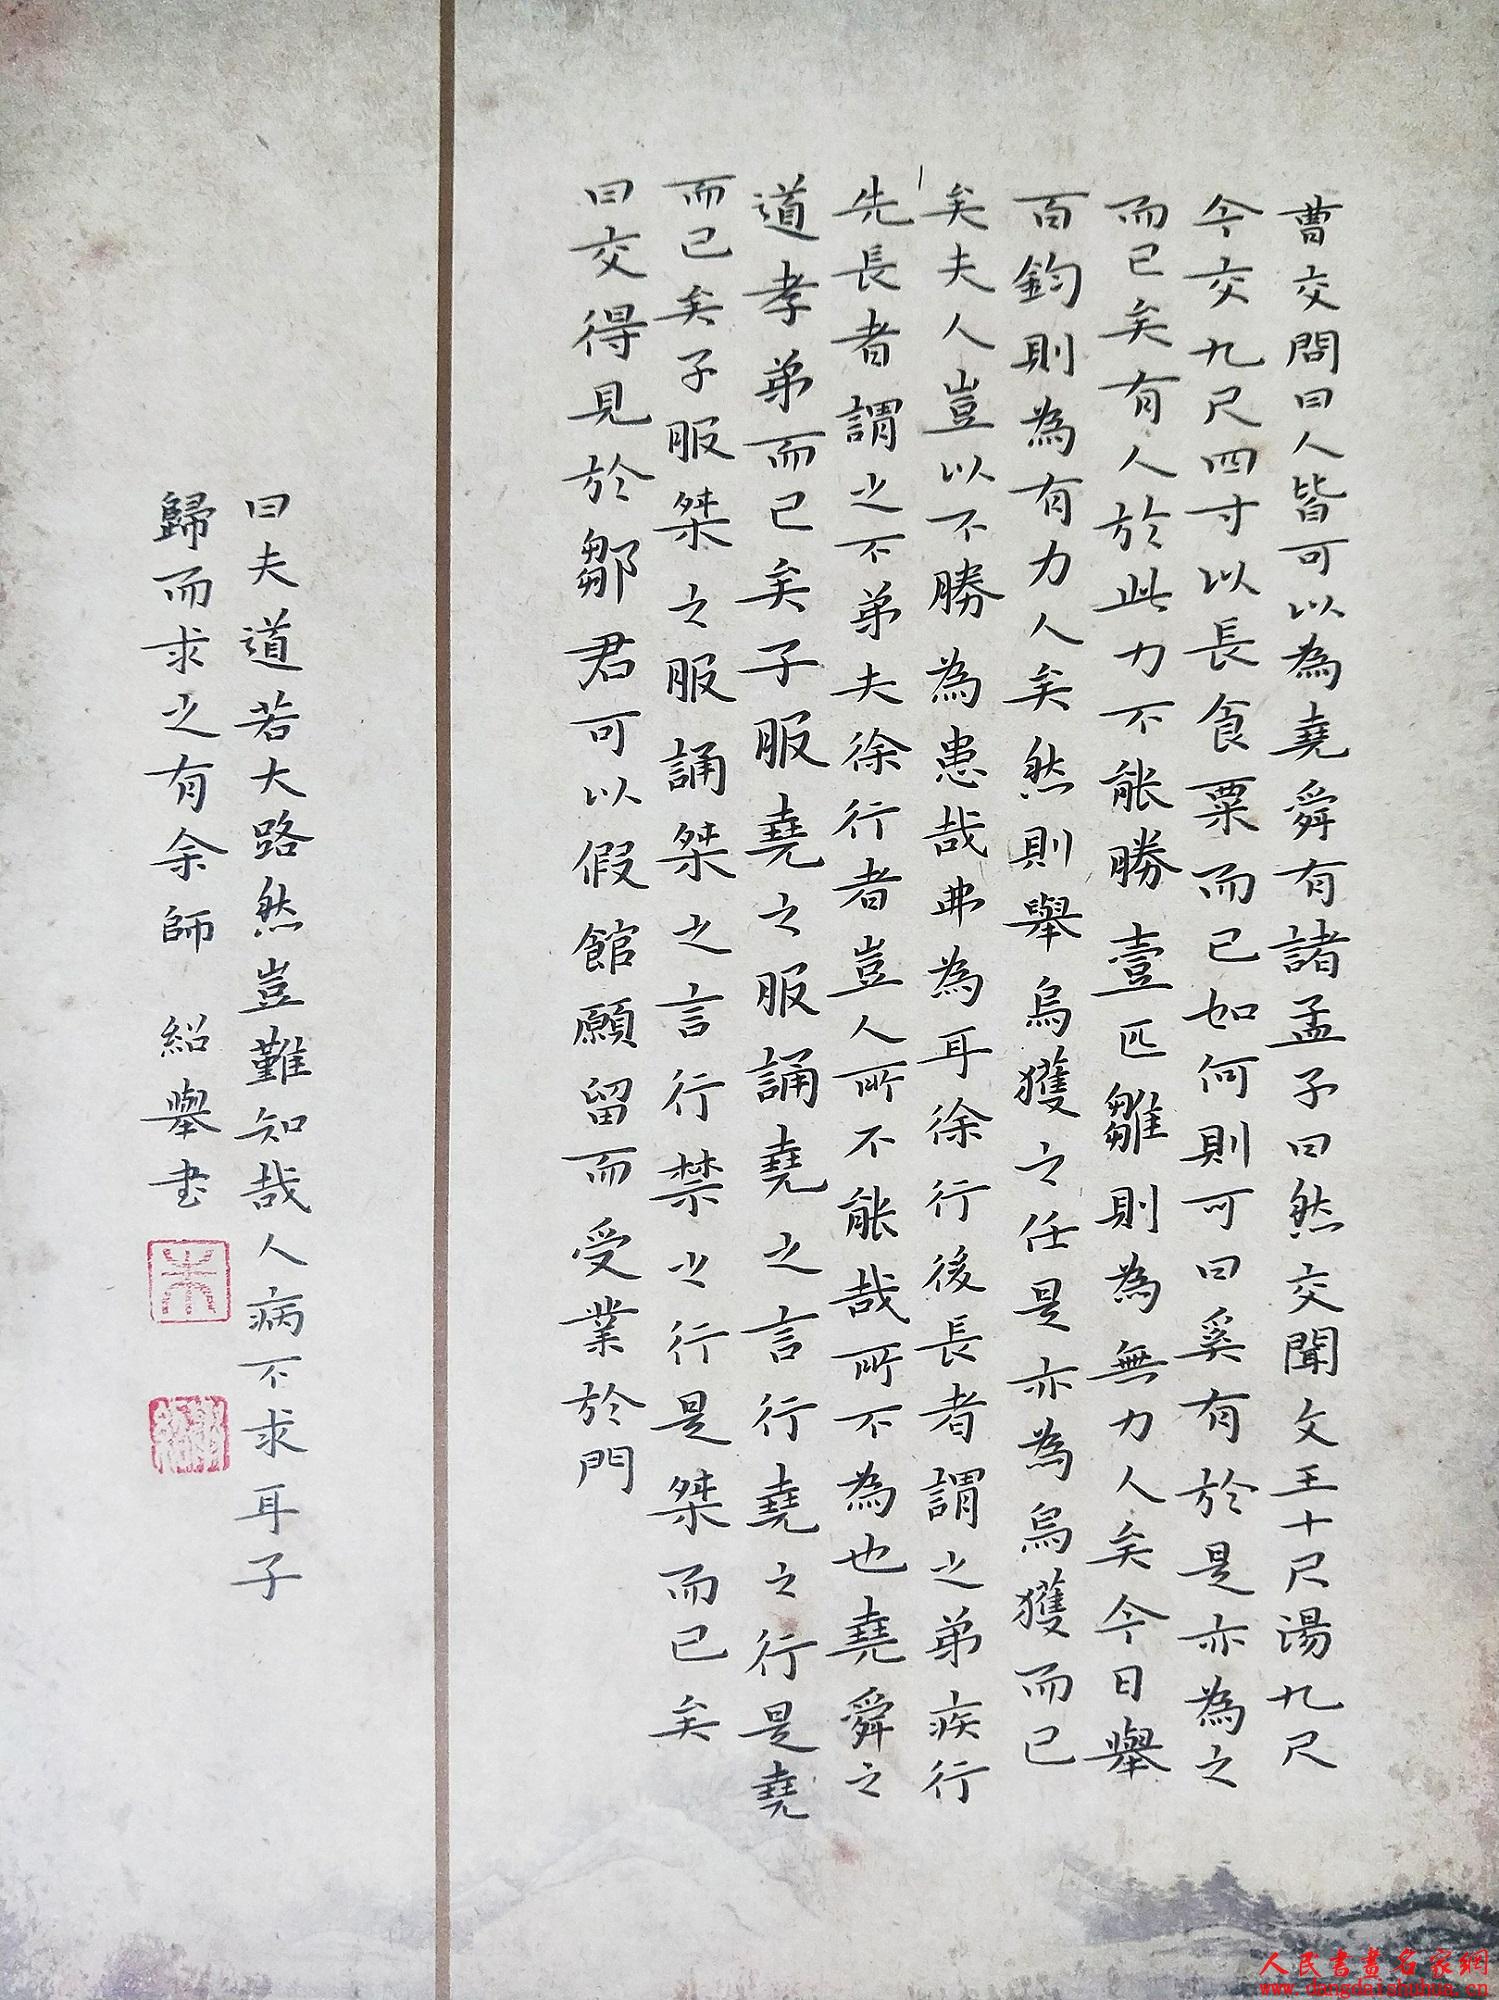 曹交問曰人皆可以為堯舜有諸孟子曰然交聞文王十尺湯九尺
今交九尺四寸以長食粟而已如何則可曰奚有於是亦為之
而已矣有人於此力不能勝壹匹雛則為無力人矣今日舉
百鈞則為有力人矣然則舉烏獲之任是亦為烏獲而已
矣夫人豈以不勝為患哉弗為耳徐行後長者謂之弟疾行
先長者謂之不弟夫徐行者豈人所不能哉所不為也堯舜之
道孝弟而已矣子服堯之服誦堯之言行堯之行是堯
而已矣子服桀之服誦桀之言行禁之行是桀而已矣
曰交得見於鄒君可以假館願留而受業於門
曰夫道若大路然豈難知哉人病不求耳子
歸而求之有余師 紹舉書
朱
人民書畫名家網
www.dangdaishuhua.cn